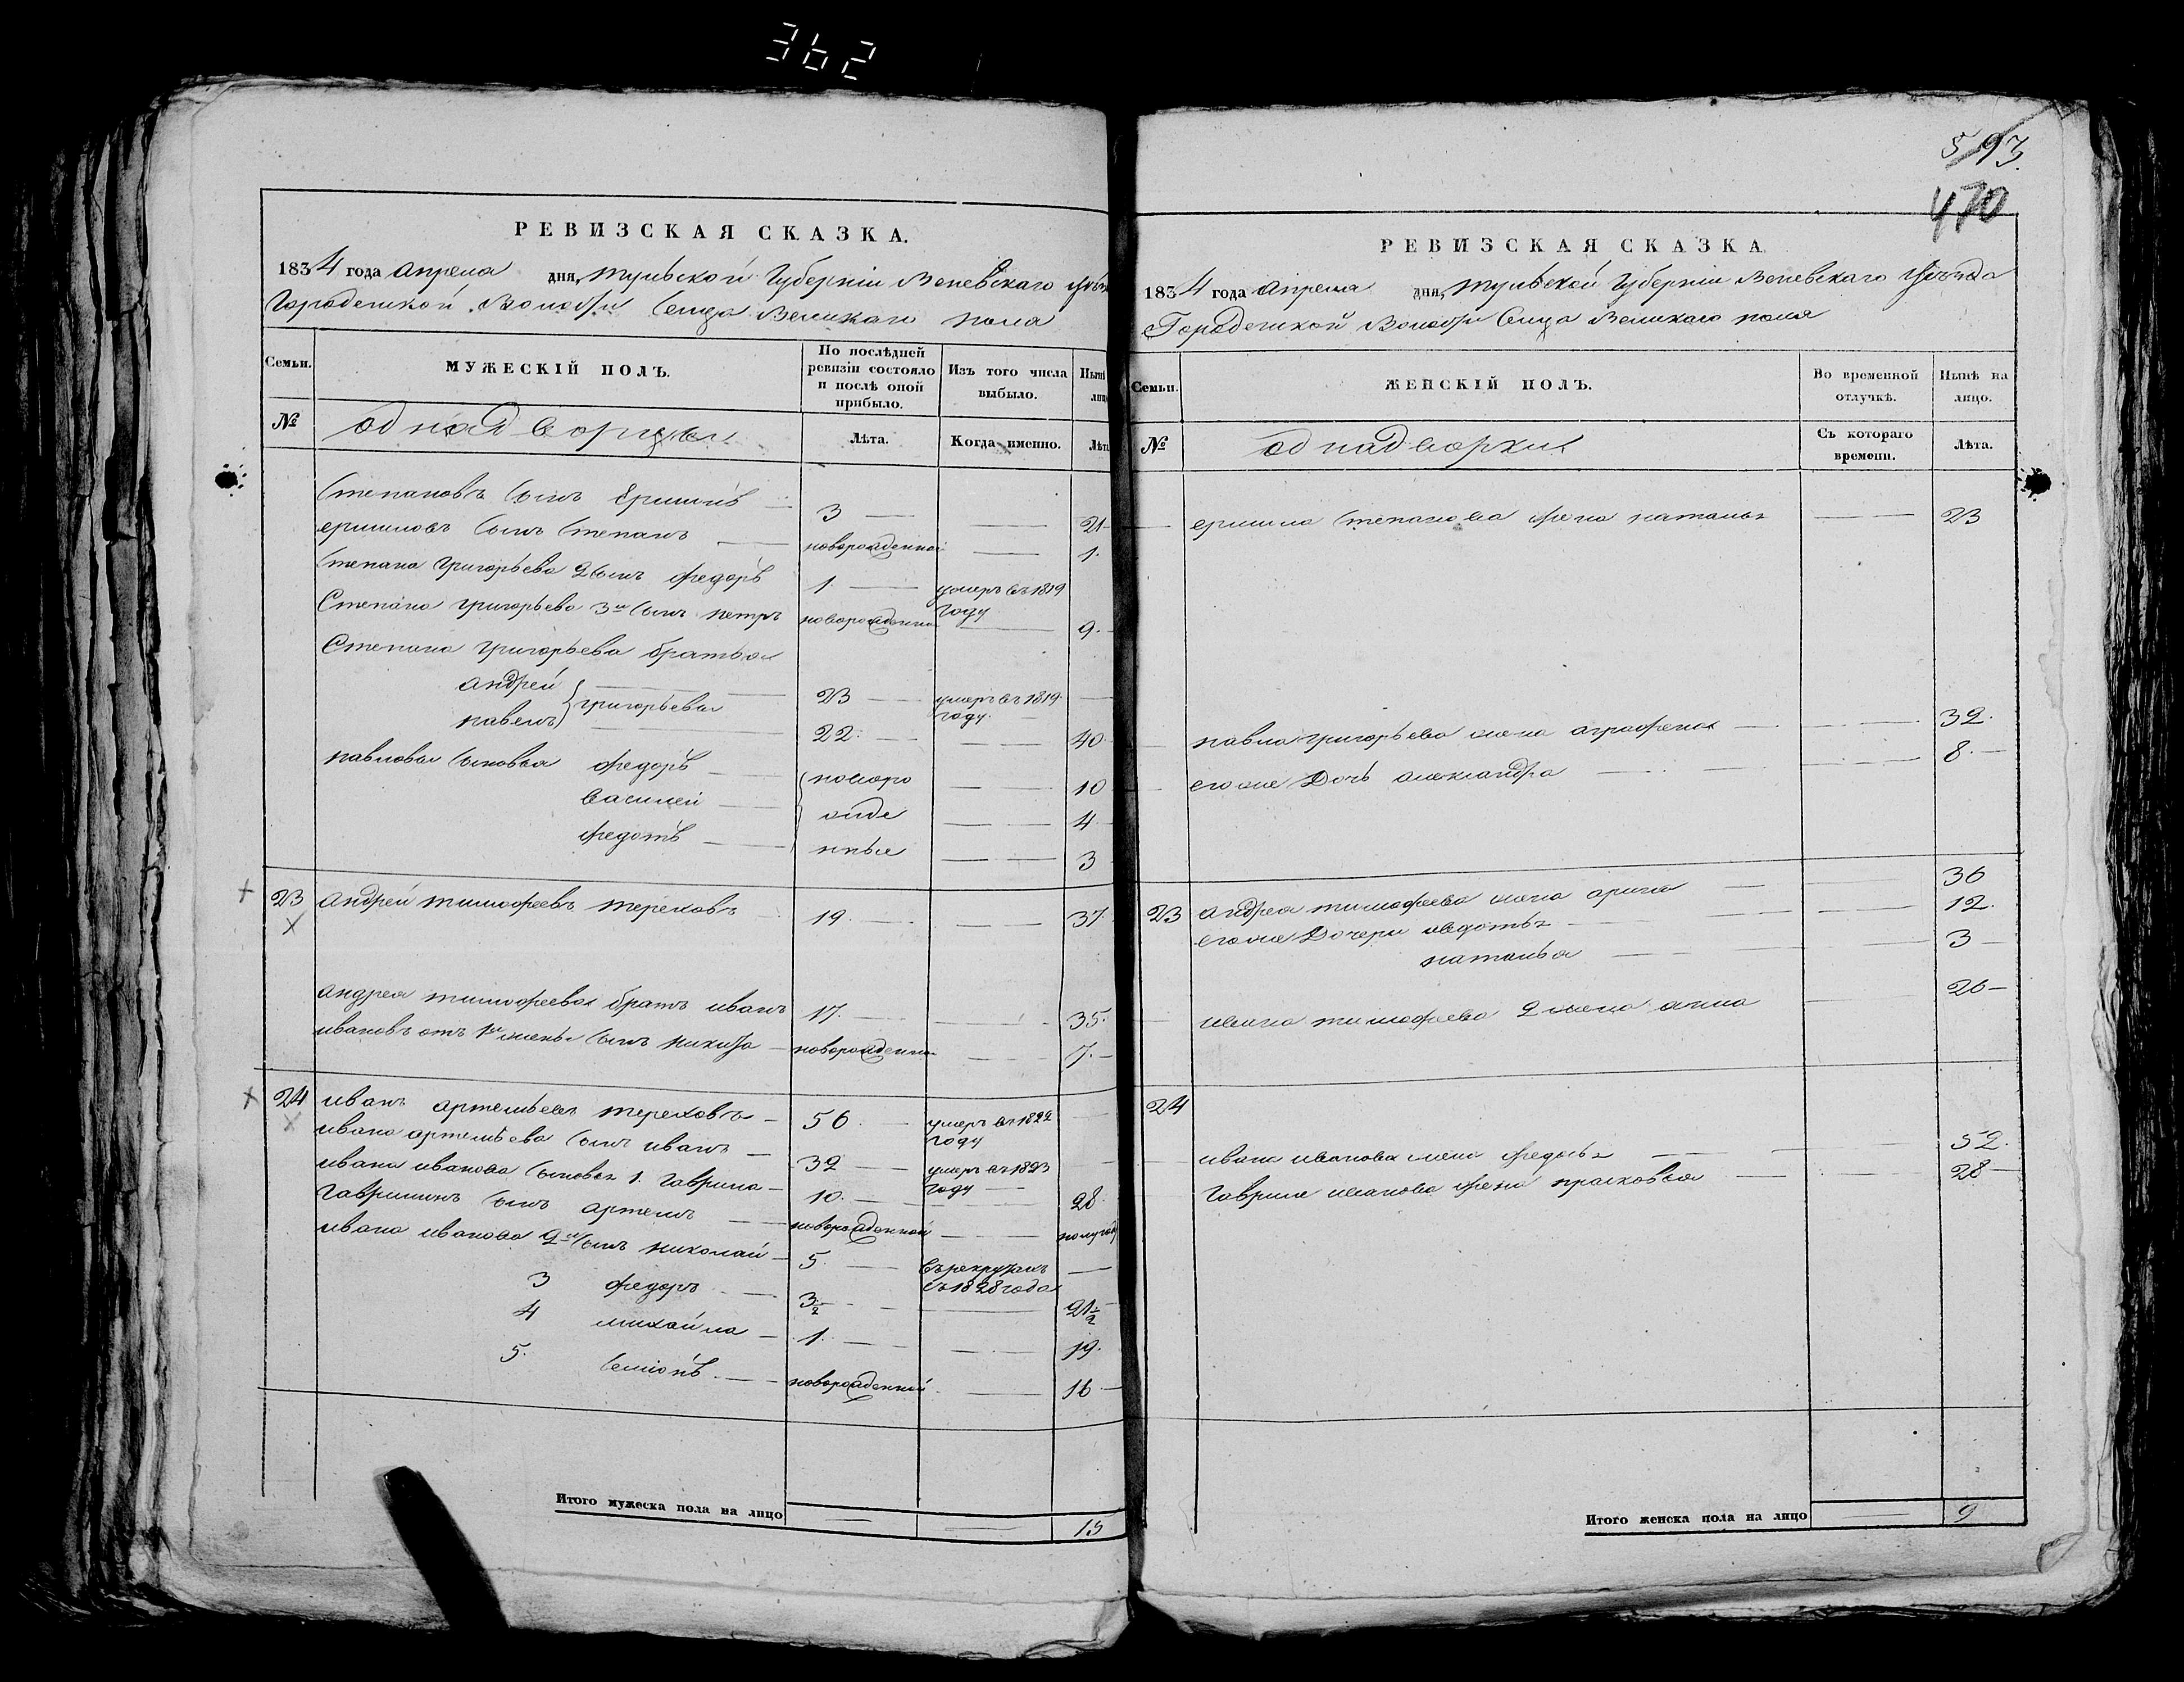 362
РЕВИЗСКАЯ СКАЗКА.
1834 года апреля дня, тульской Губерніи Веневскаго уѣзда
Городенской Волости Сельца Великаго поля
Семьи.
МУЖЕСКІЙ ПОЛЪ.
По послѣдней ревизіи состояло и послѣ оной прибыло.
Изъ того числа выбыло.
Нынѣ лицо
№
однодворцы
Лѣта.
Когда именно.
Лѣта
Степановъ сынъ Ермилъ 3 — — 21
ермиловъ сынъ степанъ — новорожденной — 1.
степана григорьева 2 сынъ федоръ 1. — умеръ въ 1819 году
Степана григорьева 3й сынъ петръ новорожденной — 9.
Степана григорьева братья
андрей } григорьевы — 23 — умеръ въ 1819 году.
павелъ } — 22. — — 40
павловы сыновья федоръ — { новоро — 10
василей — жде — 4.
федотъ — нные — 3
23 андрей тимофеевъ тереховъ 19. — — 37
андрея тимофеева братъ иванъ 17. — — 35.
ивановъ отъ 1й жены сынъ никита — новорожденной — 7.
24 иванъ артемьевъ тереховъ — 56. — умеръ въ 1822 году
ивана артемьева сынъ иванъ — 32 — умеръ въ 1823 году
ивана иванова сыновья 1. гаврила — 10. — 28
гавриловъ сынъ артемъ — новорожденной — полугоду
ивана иванова 2й сынъ николай — 5. — въ рекрутахъ съ 1828 года
3 федоръ — 3½ — 21½
4 михайла — 1. — 19.
5. семіонъ. — новорожденной — 16
Итого мужеска пола на лицо — — 15
593.
470
РЕВИЗСКАЯ СКАЗКА
1834 года апреля дня, тульской Губерніи Веневскаго уѣзда
Городенской Волости Сельца Великаго поля
Семьи.
ЖЕНСКІЙ ПОЛЪ.
Во временной отлучкѣ.
Нынѣ на лицо.
№
однадворки
Съ котораго времени.
Лѣта.
ермила степанова жена наталья — 23
павла григорьева жена аграфена — 32.
егоже Дочь александра — 8.
23 андрея тимофеева жена арина — 36
егоже Дочери авдотья — 12.
наталья — 3
ивана тимофеева 2 жена анна — 26
24
ивана иванова жена федосья — 52.
гаврилы иванова жена прасковья — 28
Итого женска пола на лицо — 9